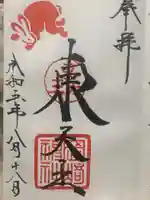 奉拝
東天王
令和五年八月十八日